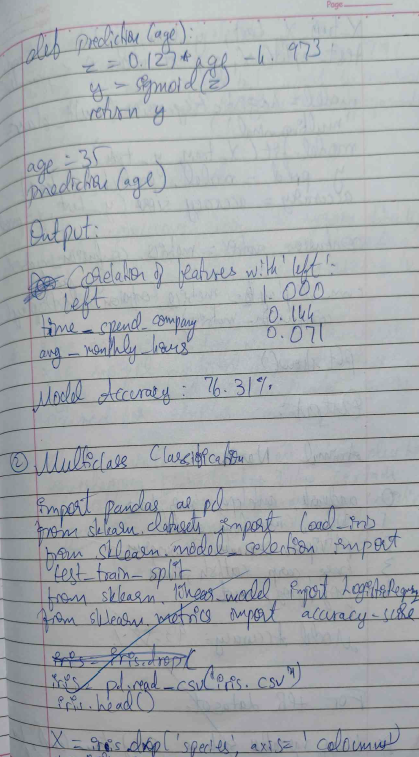 Page
def prediction(age):
z = 0.127* age - 4.973
y = sigmoid(z)
return y
age = 35
prediction(age)
Output:
Corelation of features with 'left':
left 1.000
time_spend_company 0.144
avg_monthly_hours 0.071
Model Accuracy: 76.31%
② Multiclass Classification
import pandas as pd
from sklearn.datasets import load_iris
from sklearn.model_selection import
test_train_split
from sklearn.linear_model import
from sklearn.metrics import accuracy-score
iris = iris.drop(
iris = pd.read_csv("iris.csv")
iris.head()
X = iris.drop('species', axis='columns'